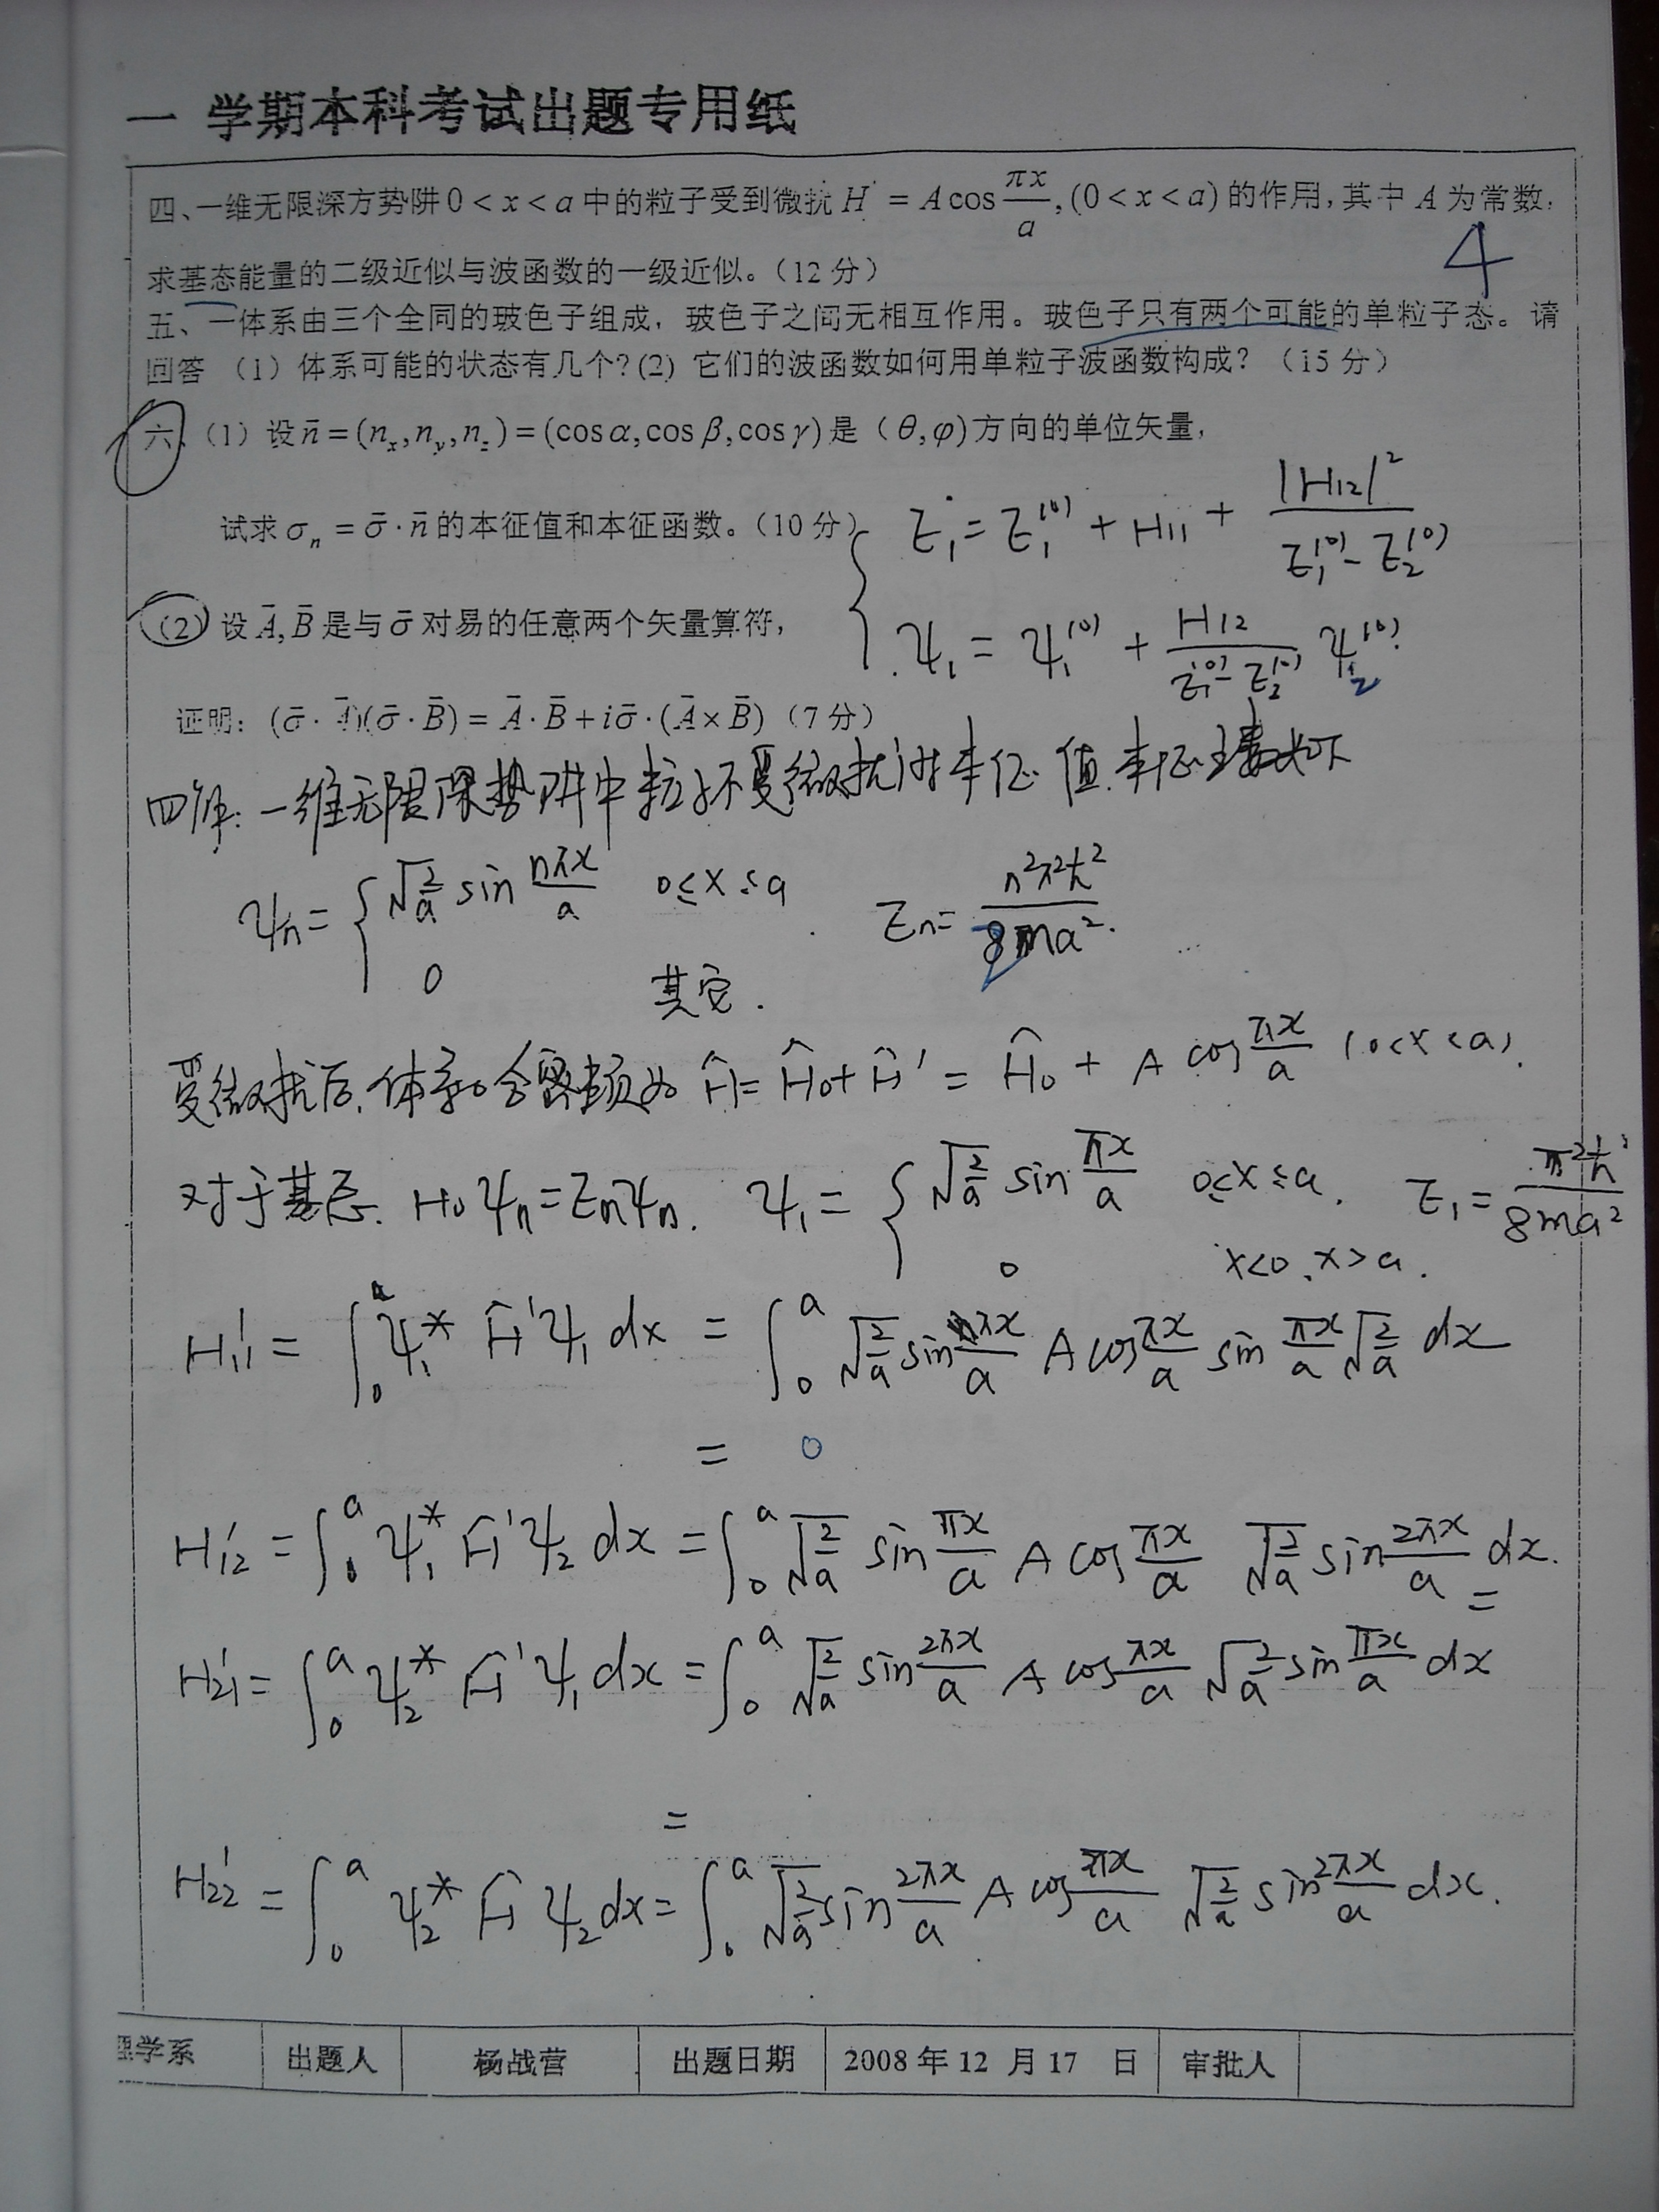 一 学期本科考试出题专用纸
四、一维无限深方势阱 0 < x < a 中的粒子受到微扰 H' = A cos πx/a, (0 < x < a) 的作用,其中 A 为常数,
求基态能量的二级近似与波函数的一级近似。(12 分)
4
五、一体系由三个全同的玻色子组成,玻色子之间无相互作用。玻色子只有两个可能的单粒子态。请
回答 (1)体系可能的状态有几个?(2) 它们的波函数如何用单粒子波函数构成? (15 分)
六、(1)设 n̄ = (nₓ, n_y, n_z) = (cos α, cos β, cos γ) 是(θ, φ)方向的单位矢量,
试求 σₙ = σ̄ · n̄ 的本征值和本征函数。(10 分)
E₁ = E₁⁽⁰⁾ + H₁₁ + |H₁₂|² / (E₁⁽⁰⁾ - E₂⁽⁰⁾)
(2) 设 Ā, B̄ 是与 σ̄ 对易的任意两个矢量算符,
ψ₁ = ψ₁⁽⁰⁾ + H₁₂ / (E₁⁽⁰⁾ - E₂⁽⁰⁾) ψ₂⁽⁰⁾
证明: (σ̄ · Ā)(σ̄ · B̄) = Ā · B̄ + iσ̄ · (Ā × B̄) (7 分)
四解: 一维无限深势阱中粒子不受微扰时本征值.本征函数如下
ψn = { √(2/a) sin nπx/a 0≤x≤a . En = n²π²ħ² / 8ma².
0 其它.
受微扰后,体系哈密顿为 Ĥ = Ĥ₀ + Ĥ' = Ĥ₀ + A cos πx/a (0<x<a).
对于基态. H₀ψn = Enψn. ψ₁ = { √(2/a) sin πx/a 0≤x≤a. E₁ = π²ħ² / 8ma²
0 x<0, x>a.
H₁₁' = ∫₀ᵃ ψ₁* Ĥ' ψ₁ dx = ∫₀ᵃ √(2/a) sin πx/a A cos πx/a sin πx/a √(2/a) dx
= 0
H₁₂' = ∫₀ᵃ ψ₁* Ĥ' ψ₂ dx = ∫₀ᵃ √(2/a) sin πx/a A cos πx/a √(2/a) sin 2πx/a dx.
=
H₂₁' = ∫₀ᵃ ψ₂* Ĥ' ψ₁ dx = ∫₀ᵃ √(2/a) sin 2πx/a A cos πx/a √(2/a) sin πx/a dx
=
H₂₂' = ∫₀ᵃ ψ₂* Ĥ ψ₂ dx = ∫₀ᵃ √(2/a) sin 2πx/a A cos πx/a √(2/a) sin 2πx/a dx.
理学系 出题人 杨战营 出题日期 2008 年 12 月 17 日 审批人